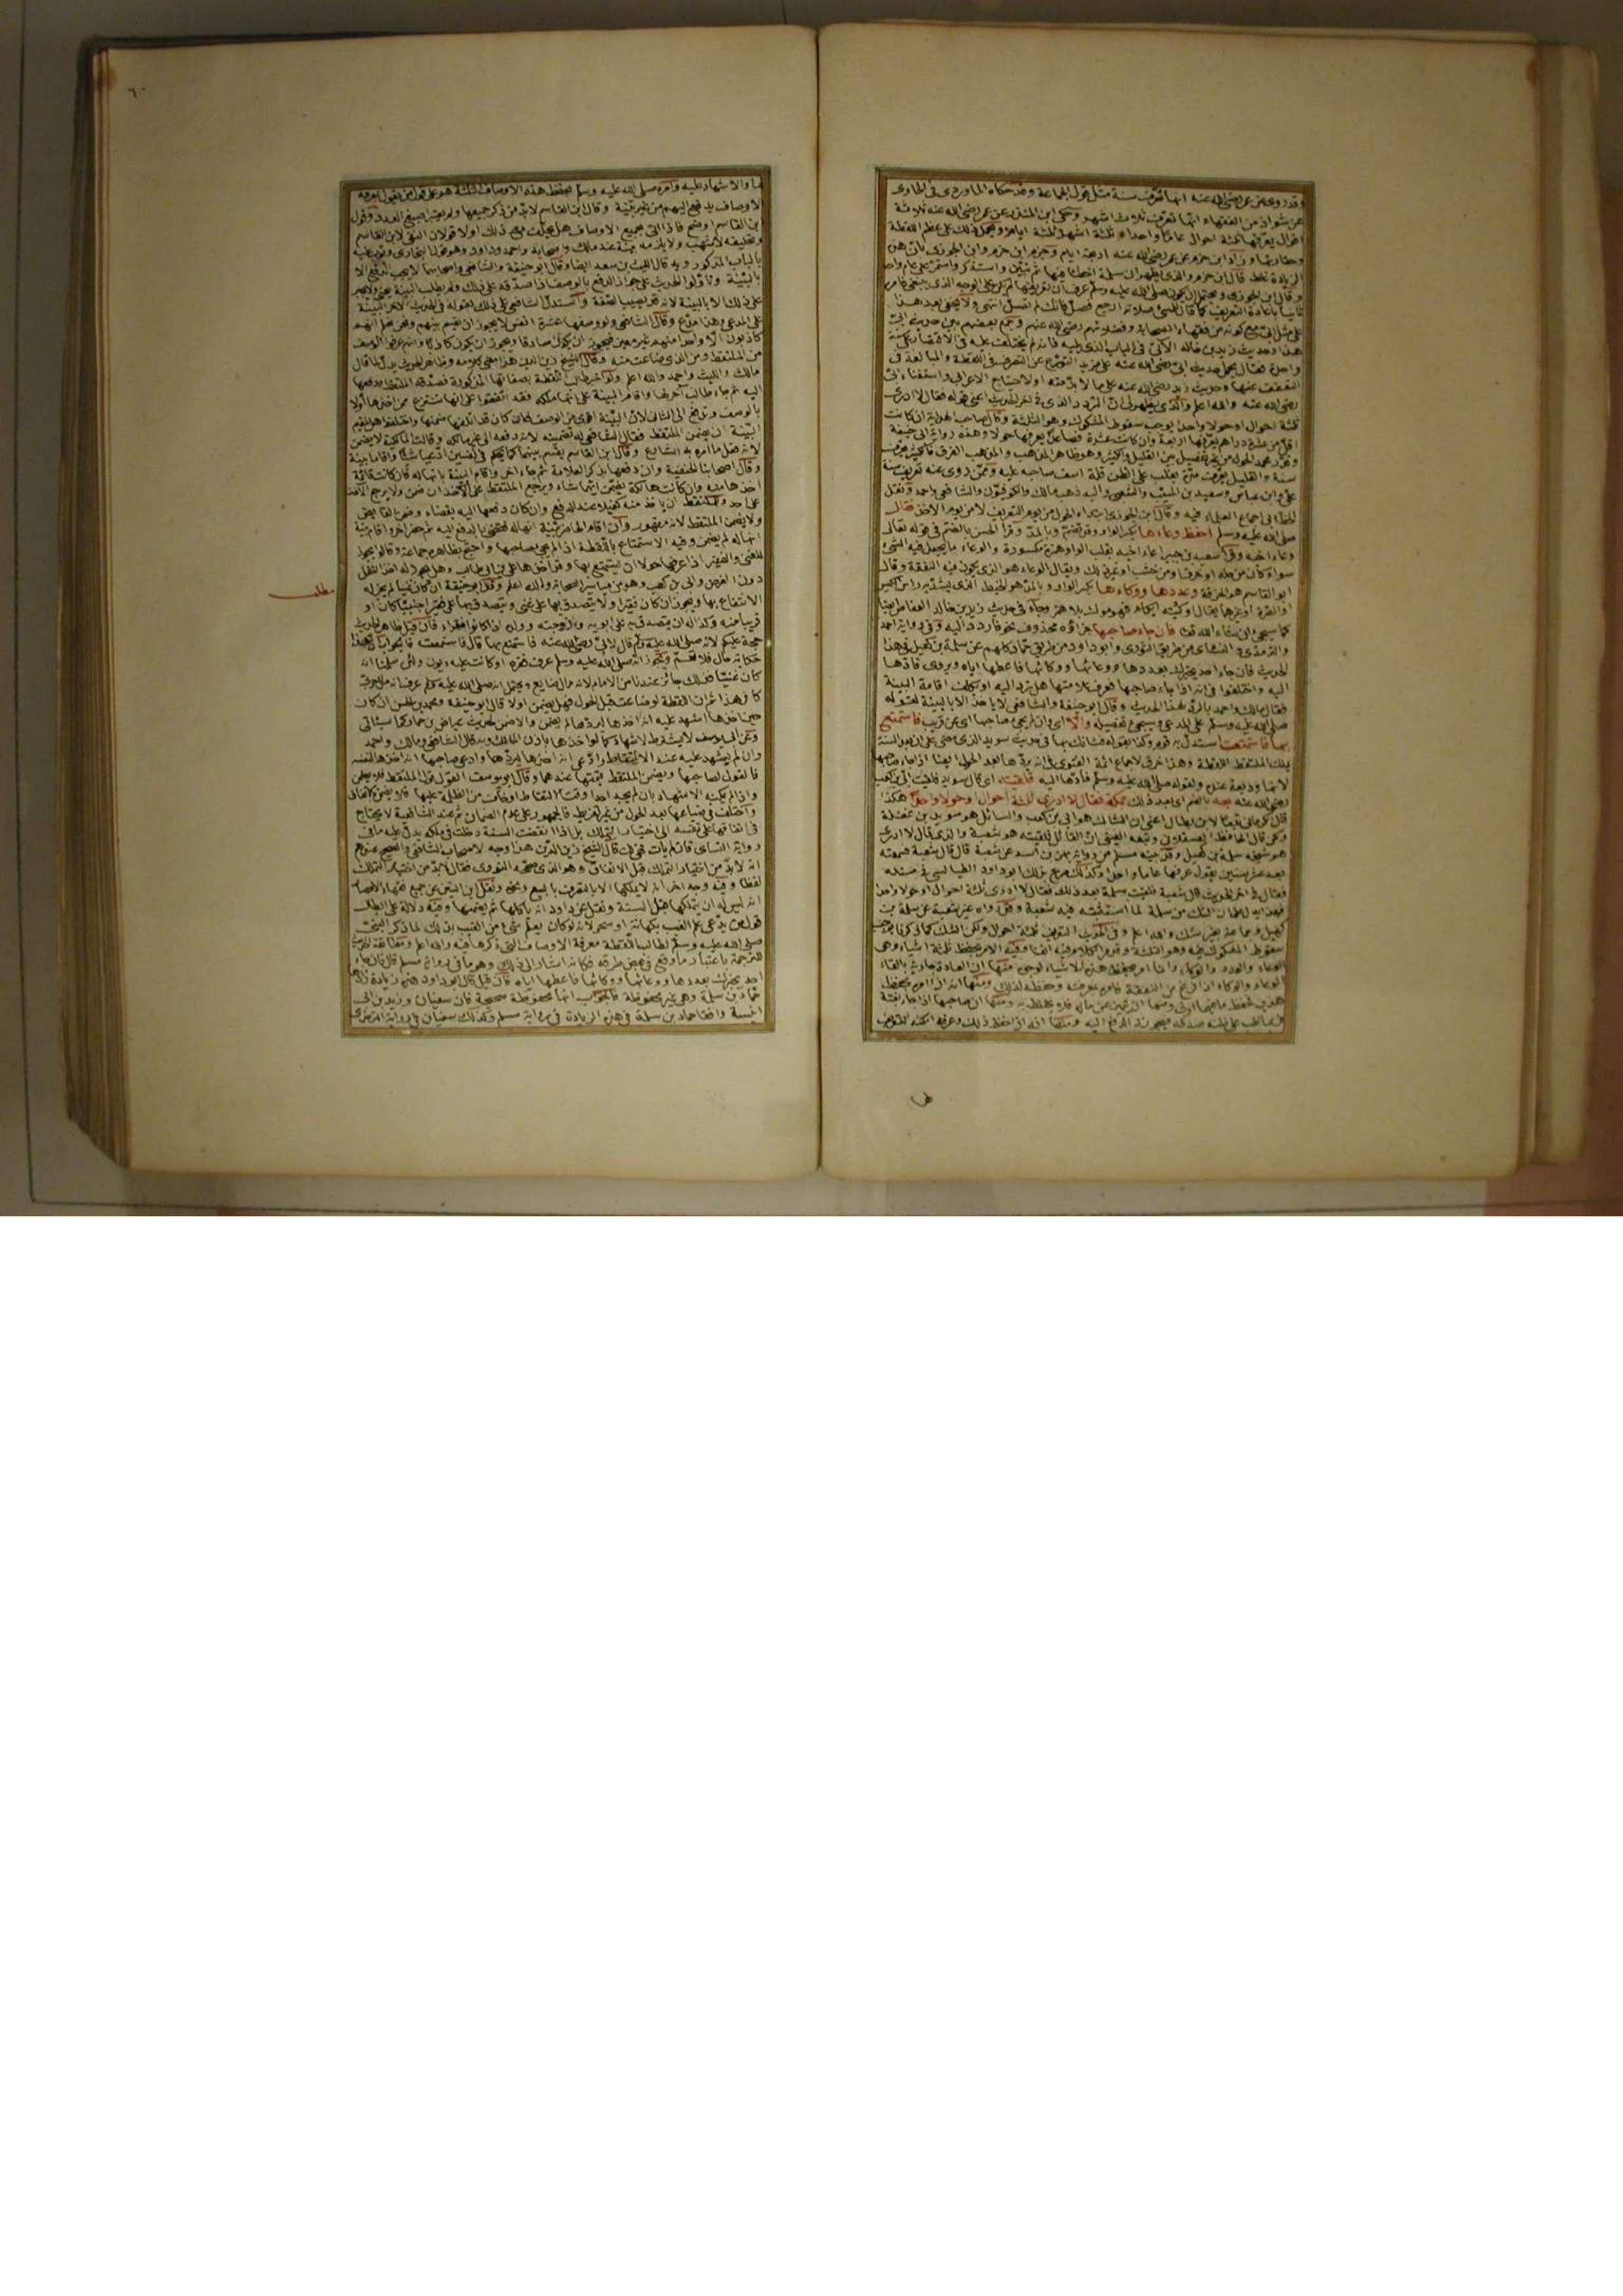 وقد روى عن عمر رضي الله عنه انها تعرف سنة مثل قول الجماعة وقد حكاه الماوردى فى الحاوى
عن شواذ من الفقهاء انها تعرف ثلاث اشهر وحكى ابن المنذر عن عمر رضي الله عنه ثلاثة
اقوال يعرفها ثلثة احوال عاما واحدا ثلثة اشهر ثلثة ايام ويحمل ذلك على عظم اللقطة
وحقارتها وزاد ابن حزم عن عمر رضي الله عنه اربعة ايام وجزم ابن حزم وابن الجوزى بان هذه
الزيادة غلط قال ابن حزم والذى يظهر ان سلمة اخطأ فيها ثم تثبت واستذكر واستمر على عام واحد
وقال ابن الجوزى ويحتمل ان يكون صلى الله عليه وسلم عرف ان تعريفها لم يكن على الوجه الذى ينبغى فامر
ثانيا باعادة التعريف كما قال للمسئ صلاته ارجع فصل فانك لم تصل انتهى ولا يخفى بعد هذا
على مثل ابى مع كونه من فقهاء الصحابة وفضلائهم رضي الله عنهم وجمع بعضهم بين حديث ابى
هذا وحديث زيد بن خالد الآتى فى الباب الذى يليه فانه لم يختلف عليه فى الاقتصار على سنة
واحدة فقال يحمل حديث ابى رضي الله عنه على مزيد التورع عن التصرف فى اللقطة والمبالغة فى
التعفف عنها وحديث زيد رضي الله عنه على ما لا بد منه او لاحتياج الاعرابى واستغناء ابى
رضي الله عنه والله اعلم والذى يظهر لى ان التردد الذى فى اخر الحديث اعنى قوله فقال لا ادرى
ثلثة احوال او حولا واحدا يوجب سقوط المشكوك وهو الثلثة وقال صاحب الهداية ان كانت
اقل من عشرة دراهم يعرفها اياما وان كانت عشرة فصاعدا يعرفها حولا وهذه رواية ابى حنيفة
وقدر محمد الحول من غير تفصيل بين القليل والكثير وهو ظاهر المذهب
سنة والقليل يعرف مدة يغلب على الظن قلة اسف صاحبه عليه وممن روى عنه تعريف سنة
على وابن عباس وسعيد بن المسيب والشعبى واليه ذهب مالك والكوفيون والشافعى واحمد ونقل
الخطابى اجماع العلماء فيه وقال ابن الجوزى ابتداء الحول من يوم التعريف لا من يوم الاخذ فقال
صلى الله عليه وسلم احفظ وعاءها بكسر الواو وقد تضم وبالمد وقرأ الحسن بالضم فى قوله تعالى
وعاء اخيه وقرأ سعيد بن جبير اعاء اخيه بقلب الواو همزة مكسورة والوعاء ما يجعل فيه الشئ
سواء كان من جلد او خزف او من خشب او غير ذلك ويقال الوعاء هو الذى يكون فيه النفقة وقال
ابو القاسم هو الخرقة وعددها ووكاءها بكسر الواو وبالمد هو الخيط الذى يشد به رأس الكيس
او الصرة او غيرها يقال اوكيته ايكاء فهو موكى بلا همز وجاء فى حديث زيد بن خالد العفاص ايضا
كما سيجئ ان شاء الله تعالى فان جاء صاحبها جزاؤه محذوف نحو فارددها اليه وفى رواية احمد
والترمذى والنسائى من طريق الثورى وابو داود من طريق حماد كلهم عن سلمة بن كهيل فى هذا
الحديث فان جاء احد يخبرك بعددها ووعائها ووكائها فاعطها اياه ويروى فادها
اليه واختلفوا فى انه اذا جاء صاحبها فعرف علامتها هل ترد اليه او يكلف اقامة البينة
فقال مالك واحمد بالرد لهذا الحديث وقال ابو حنيفة والشافعى لا ياخذ الا بالبينة لقوله
صلى الله عليه وسلم على المدعى وسيجئ تفصيله والا اى وان لم يجئ صاحبها اى عن قريب فاستمتع
بها فاستمتعت استدل به قوم وكذا بقوله فشانك بها فى حديث سويد الذى مضى على ان بعد السنة
يملك الملتقط اللقطة وهذا خرق لاجماع ائمة الفتوى فى انه يردها بعد الحول ايضا اذا جاء صاحبها
لانها وديعة عنده ولقوله صلى الله عليه وسلم فادها اليه فلقيته اى قال سويد فلقيت ابى بن كعب
رضي الله عنه بعد بالضم اى بعد ذلك بمكة فقال لا ادرى ثلثة احوال او حولا واحدا هكذا
هو شيخه سلمة بن كهيل وقد بينه مسلم من رواية بهز بن اسد عن شعبة قال قال شعبة فسمعته
بعد عشر سنين يقول عرفها عاما واحدا وكذلك صرح بذلك ابو داود الطيالسى فى مسنده
فقال فى اخر الحديث قال شعبة فلقيت سلمة بعد ذلك فقال لا ادرى ثلثة احوال او حولا واحدا
سقوط المشكوك فيه وهو الثلثة وفيه الامر بحفظ ثلثة اشياء وهى
الوعاء والعدد والوكاء وانما امر بحفظ هذه الاشياء لوجوه منها ان العادة جارية بالقاء
الوعاء والوكاء اذا فرغ من النفقة فامر بمعرفته وحفظه لذلك ومنها انه اذا امر بحفظ
هذين فحفظ ما فيهما اولى ومنها ان يتميز عن ماله فلا يختلط به ومنها ان صاحبها اذا جاء بغتة
٦٠
والاشهاد عليه وامره صلى الله عليه وسلم بحفظ هذه الاوصاف الثلثة هو على قول من يقول بمعرفة
الاوصاف يدفع اليهم من غير بينة وقال ابن القاسم لا بد من ذكر جميعها ولم يعتبر اصبغ العدد وقول
ابن القاسم اوضح فاذا اتى بجميع الاوصاف هل يحلف مع ذلك او لا قولان النفى لابن القاسم
وتحليفه لاشهب ولا يلزمه بينة عند مالك واصحابه واحمد وداود وهو قول البخارى وبوب عليه
بالباب المذكور وبه قال الليث بن سعد ايضا وقال ابو حنيفة والشافعى واصحابهما لا يجب الدفع الا
بالبينة وتأولوا الحديث على جواز الدفع بالوصف اذا صدقه على ذلك ولم يطلب البينة
على المدعى وهذا مدع وقال الشافعى ولو وصفها عشرة انفس لا يجوز ان يقسم بينهم ونحن نعلم انهم
كاذبون الا واحدا منهم غير معين فيجوز ان يكون صادقا ويجوز ان يكون كاذبا وانهم عرفوا الوصف
من الملتقط ومن الذى ضاعت منه وقال الشيخ زين الدين هذا معنى كلامه وظاهر الحديث يدل لما قال
مالك والليث واحمد والله اعلم ولو اخبر طالب اللقطة بصفاتها المذكورة فصدقه الملتقط ودفعها
اليه ثم جاء طالب آخر لها واقام البينة على انها ملكه فقد اتفقوا على انها تنتزع ممن اخذها اولا
بالوصف وتدفع الى الثانى لان البينة اقوى من الوصف فان كان قد اتلفها ضمنها واختلفوا هل لمقيم
البينة ان يضمن الملتقط فقال الشافعى له تضمينه لانه دفعه الى غير مالكه وقالت المالكية لا يضمن
لانه فعل ما امره به الشارع وقال ابن القاسم يقسم بينهما كما يحكم فى نفسين ادعيا شيئا واقاما بينة
وقال اصحابنا الحنفية وان دفعها بذكر العلامة ثم جاء آخر واقام البينة بانها له فان كانت قائمة
اخذها منه وان كانت هالكة يضمن ايهما شاء ويرجع الملتقط على الآخذ ان ضمن ولا يرجع الآخذ
على احد وللملتقط ان ياخذ منه كفيلا عند الدفع وان كان دفعها اليه بقضاء
ولا يضمن الملتقط لانه مقهور وان اقام الحاضر بينة انها له فقضى بالدفع اليه ثم حضر آخر واقام بينة
انها له لم يضمن وفيه الاستمتاع باللقطة اذا لم يجئ صاحبها واحتج بظاهره جماعة وقالوا يجوز
للغنى والفقير اذا عرفها حولا ان يستمتع بها وقد اخذها على بن ابى طالب وهو يجوز له اخذ النفل
دون الفرض وابى بن كعب وهو من مياسير الصحابة والله اعلم وقال ابو حنيفة ان كان غنيا لم يجز له
الانتفاع بها ويجوز ان كان فقيرا ولا يتصدق بها على غنى ويتصدق بها على فقير اجنبيا كان او
قريبا منه وكذا له ان يتصدق به على ابويه وزوجته وولده اذا كانوا فقراء فان قيل ظاهر الحديث
حجة عليكم لانه صلى الله عليه وسلم قال لابى رضي الله عنه فاستمتع بها قال فاستمتعت فالجواب ان هذا
حكاية حال فلا تعم ويجوز انه صلى الله عليه وسلم عرف فقره او كانت عليه ديون ولئن سلمنا انه
كان غنيا فذلك جائز عندنا من الامام لانه مال ضايع ويحتمل انه صلى الله عليه وسلم عرف انه مال حربى
كافر هذا ثم ان اللقطة لو ضاعت قبل الحول فهل يضمن او لا قال ابو حنيفة ومحمد بن الحسن ان كان
حين اخذها اشهد عليه انه اخذها ليردها لم يضمن والا ضمن لحديث عياض بن حمار كما سيأتى
وعن ابى يوسف لا يشترط الاشهاد كما لو اخذها باذن المالك وبه قال الشافعى ومالك واحمد
وان لم يشهد عليه عند الالتقاط وادعى انه اخذها ليردها وادعى صاحبها انه اخذها لنفسه
فالقول لصاحبها ويضمن الملتقط قيمتها عندهما وقال ابو يوسف القول قول الملتقط فلا يضمن
واذا لم يمكنه الاشهاد بان لم يجد احدا وقت الالتقاط او خاف من الظلمة عليها فلا يضمن بالاتفاق
واختلف فى ضياعها بعد الحول من غير تفريط فالجمهور على عدم الضمان ثم عند الشافعية لا يحتاج
فى انفاقها على نفسه الى اختيار التملك بل اذا انقضت السنة دخلت فى ملكه يدل عليه ما فى
رواية النسائى فان لم يات فهى لك قال الشيخ زين الدين هذا وجه لاصحاب الشافعى والصحيح عندهم
انه لا بد من اختيار التملك قبل الانفاق وهو الذى صححه النووى فقال لا بد من اختيار التملك
لفظا وفيه وجه اخر انه لا يملكها الا بالتصرف بالبيع ونحوه ونقل ابن التين عن جميع فقهاء الامصار
انه ليس له ان يتملكها قبل السنة ونقل عن داود انه ياكلها ثم يضمنها وفيه دلالة على ابطال
قول من يدعى علم الغيب بكهانة او سحر لانه لو كان يعلم شئ من الغيب بذلك لما ذكر النبى
صلى الله عليه وسلم لطالب اللقطة معرفة الاوصاف التى ذكرها فيه والله اعلم ومطابقة الحديث
للترجمة باعتبار ما وقع فى بعض طرقه فكانه اشار الى ذلك وهو ما فى رواية مسلم قال فان جاء
احد يخبرك بعددها ووعائها ووكائها فاعطها اياه فان قيل قال ابو داود هذه زيادة زادها
حماد بن سلمة وهى غير محفوظة فالجواب انها محفوظة صحيحة فان سفيان وزيد بن ابى
انيسة وافقا حماد بن سلمة فى هذه الزيادة فى رواية مسلم وكذلك سفيان فى رواية الترمذى
مطلب